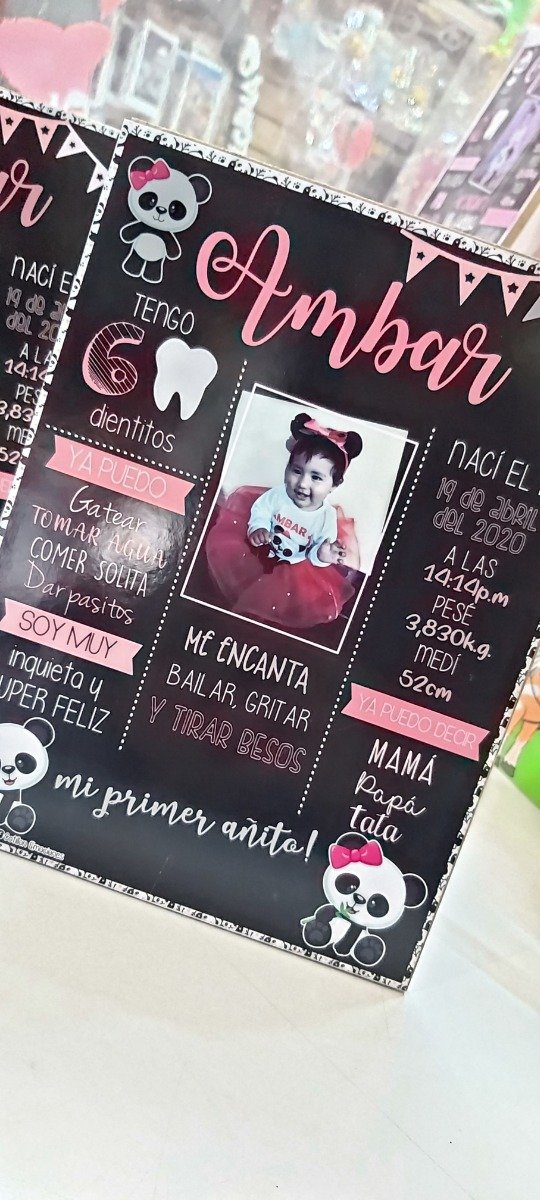 Ambar
TENGO
6
dientitos
YA PUEDO
Gatear
TOMAR AGUA
COMER SOLITA
Dar pasitos
SOY MUY
inquieta y
UPER FELIZ
AMBAR
ME ENCANTA
BAILAR, GRITAR
Y TIRAR BESOS
NACÍ EL
19 de abril
del 2020
A LAS
14:14p.m
PESÉ
3,830kg.
MEDÍ
52cm
YA PUEDO DECIR
MAMÁ
Papá
tata
mi primer añito!
ar
NACÍ EL
19 de a
del 20
A LA
14:14
PES
3,83
ME